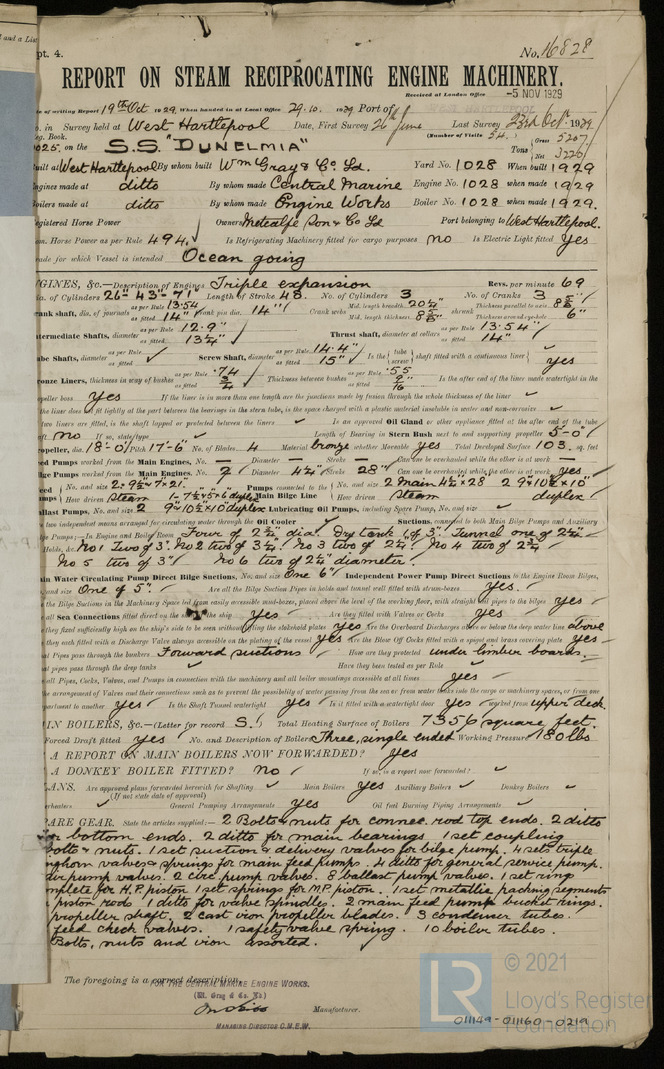 and a List
pt. 4.
No. 16828
REPORT ON STEAM RECIPROCATING ENGINE MACHINERY.
Received at London Office -5 NOV 1929
of writing Report 19th Oct 1929. When handed in at Local Office 29.10. 1929 Port of WEST HARTLEPOOL
in Survey held at West Hartlepool Date, First Survey 26th June Last Survey 23rd Oct 1929
eg. Book. (Number of Visits 54.)
025. on the S.S. "DUNELMIA" Tons Gross 5207 Net 3220
uilt at West Hartlepool By whom built Wm Gray & Co Ld. Yard No. 1028 When built 1929
ngines made at ditto By whom made Central Marine Engine No. 1028 when made 1929
oilers made at ditto By whom made Engine Works Boiler No. 1028 when made 1929.
egistered Horse Power Owners Metcalfe Son & Co Ld Port belonging to West Hartlepool.
om. Horse Power as per Rule 494. Is Refrigerating Machinery fitted for cargo purposes no Is Electric Light fitted Yes
rade for which Vessel is intended Ocean going
NGINES, &c.—Description of Engines Triple expansion Revs. per minute 69
ia. of Cylinders 26"-43"-71" Length of Stroke 48. No. of Cylinders 3 No. of Cranks 3
rank shaft, dia. of journals as per Rule 13.54 as fitted 14" Crank pin dia. 14" Crank webs Mid. length breadth 20½" Mid. length thickness 8⅝" shrunk Thickness parallel to axis 8⅝" Thickness around eye-hole 6"
termediate Shafts, diameter as per Rule 12.9" as fitted 13¼" Thrust shaft, diameter at collars as per Rule 13.54" as fitted 14"
ube Shafts, diameter as per Rule as fitted Screw Shaft, diameter as per Rule 14.4" as fitted 15" Is the tube screw shaft fitted with a continuous liner yes
ronze Liners, thickness in way of bushes as per Rule .74 as fitted ¾" Thickness between bushes as per Rule .55 as fitted 9/16" Is the after end of the liner made watertight in the
peller boss yes If the liner is in more than one length are the junctions made by fusion through the whole thickness of the liner
the liner does not fit tightly at the part between the bearings in the stern tube, is the space charged with a plastic material insoluble in water and non-corrosive
two liners are fitted, is the shaft lapped or protected between the liners Is an approved Oil Gland or other appliance fitted at the after end of the tube
ft no If so, state type Length of Bearing in Stern Bush next to and supporting propeller 5-0"
opeller, dia. 18-0" Pitch 17-6" No. of Blades 4 Material bronze whether Moveable yes Total Developed Surface 103 sq. feet
eed Pumps worked from the Main Engines, No. — Diameter — Stroke — Can one be overhauled while the other is at work —
ilge Pumps worked from the Main Engines, No. 2 Diameter 4¼" Stroke 28" Can one be overhauled while the other is at work yes
eed No. and size 2. 9½" × 7" × 21" Pumps connected to the No. and size 2 Main 4¼" × 28 2 9" × 10½ × 10"
umps How driven Steam Main Bilge Line How driven Steam duplex
allast Pumps, No. and size 2 9" × 10½ × 10" duplex Lubricating Oil Pumps, including Spare Pump, No. and size
e two independent means arranged for circulating water through the Oil Cooler Suctions, connected to both Main Bilge Pumps and Auxiliary
ge Pumps;—In Engine and Boiler Room Four of 2¾" dia. Dry tank 1 of 3". Tunnel one of 2½"
Holds, &c. No 1 Two of 3". No 2 two of 3½". No 3 two of 2¾". No 4 two of 2¾"
No 5 two of 3". No 6 two of 2¾" diameter.
ain Water Circulating Pump Direct Bilge Suctions, No. and size One 6" Independent Power Pump Direct Suctions to the Engine Room Bilges,
and size One of 5". Are all the Bilge Suction Pipes in holds and tunnel well fitted with strum-boxes yes.
the Bilge Suctions in the Machinery Space led from easily accessible mud-boxes, placed above the level of the working floor, with straight tail pipes to the bilges yes
all Sea Connections fitted direct on the skin of the ship Yes Are they fitted with Valves or Cocks Yes
they fixed sufficiently high on the ship's side to be seen without lifting the stokehold plates yes Are the Overboard Discharges above or below the deep water line above
they each fitted with a Discharge Valve always accessible on the plating of the vessel yes Are the Blow Off Cocks fitted with a spigot and brass covering plate yes
at Pipes pass through the bunkers Forward suctions How are they protected under limber boards.
at pipes pass through the deep tanks Have they been tested as per Rule
all Pipes, Cocks, Valves, and Pumps in connection with the machinery and all boiler mountings accessible at all times yes
he arrangement of Valves and their connections such as to prevent the possibility of water passing from the sea or from water tanks into the cargo or machinery spaces, or from one
partment to another yes Is the Shaft Tunnel watertight yes Is it fitted with a watertight door yes worked from upper deck.
IN BOILERS, &c.—(Letter for record S.) Total Heating Surface of Boilers 7356 square feet.
Forced Draft fitted yes No. and Description of Boilers Three, single ended Working Pressure 180 lbs
A REPORT ON MAIN BOILERS NOW FORWARDED? Yes
A DONKEY BOILER FITTED? no If so, is a report now forwarded?
ANS. Are approved plans forwarded herewith for Shafting Main Boilers yes Auxiliary Boilers Donkey Boilers
(If not state date of approval)
erheaters General Pumping Arrangements yes Oil fuel Burning Piping Arrangements
ARE GEAR. State the articles supplied:— 2 Bolts & nuts for connec. rod top ends. 2 ditto
r bottom ends. 2 ditto for main bearings 1 set coupling
bolts & nuts. 1 set suction & delivery valves for bilge pump. 4 sets triple
nghorn valves & springs for main feed pumps. 4 ditto for general service pump.
air pump valves. 2 circ. pump valves. 8 ballast pump valves. 1 set ring
mplete for H.P. piston 1 set springs for M.P. piston. 1 set metallic packing segments
piston rods 1 ditto for valve spindles. 2 main feed pump bucket rings.
propeller shaft. 2 cast iron propeller blades. 3 condenser tubes.
feed check valves. 1 safety valve spring. 10 boiler tubes.
Bolts, nuts and iron assorted.
The foregoing is a correct description,
FOR THE CENTRAL MARINE ENGINE WORKS.
(Wm. Gray & Co. Ld.)
Manufacturer.
MANAGING DIRECTOR C.M.E.W.
LR
© 2021
Lloyd's Register
Foundation
011149-011160-0219